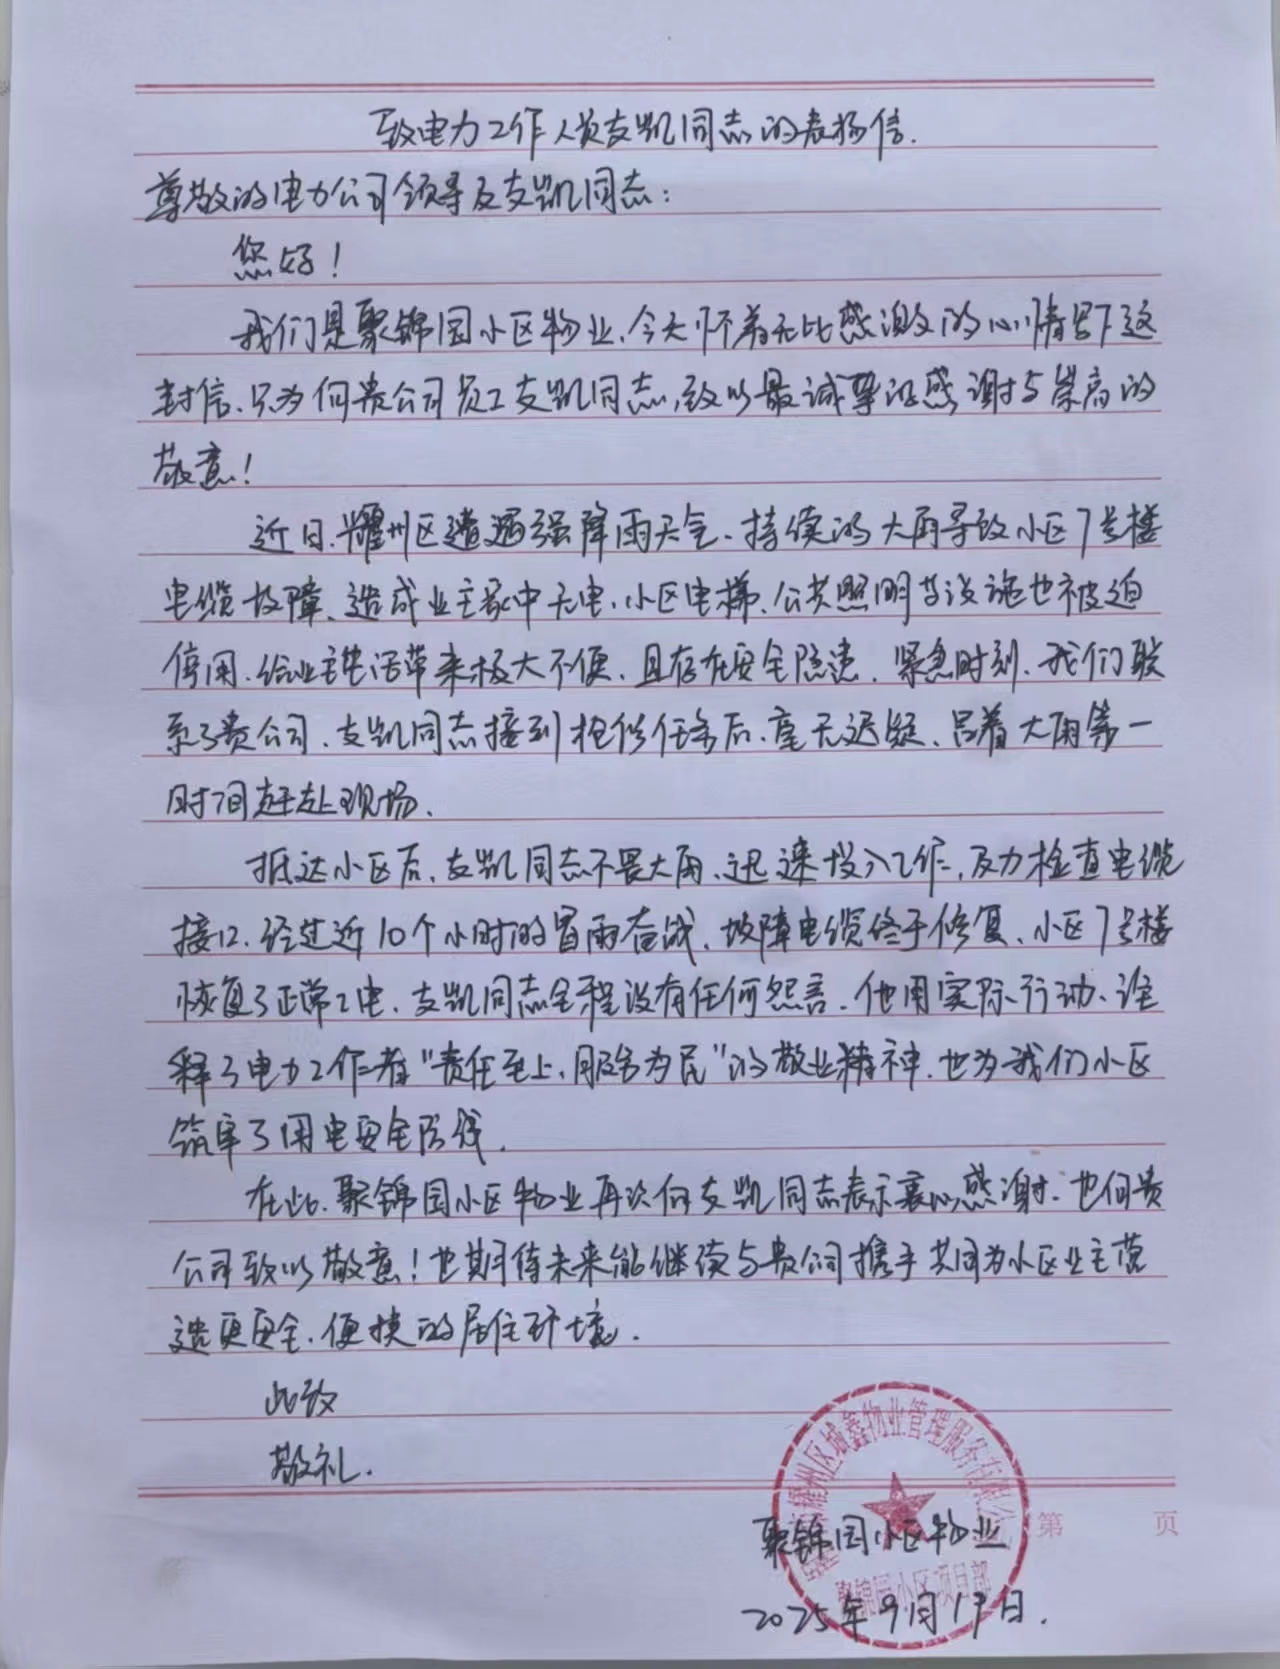 致电力工作人员支凯同志的表扬信.
尊敬的电力公司领导及支凯同志:
您好!
我们是聚锦园小区物业,今天怀着无比感激的心情写下这
封信、只为向贵公司员工支凯同志,致以最诚挚的感谢与崇高的
敬意!
近日、耀州区遭遇强降雨天气、持续的大雨导致小区7号楼
电缆故障、造成业主家中无电、小区电梯、公共照明等设施也被迫
停用、给业主生活带来极大不便、且存在安全隐患、紧急时刻、我们联
系了贵公司、支凯同志接到抢修任务后、毫无迟疑、冒着大雨第一
时间赶赴现场.
抵达小区后、支凯同志不畏大雨、迅速投入工作、及力检查电缆
接口、经过近10个小时的冒雨奋战、故障电缆终于修复、小区7号楼
恢复了正常工电、支凯同志全程没有任何怨言、他用实际行动、诠
释了电力工作者"责任至上,服务为民"的敬业精神、也为我们小区
筑牢了用电安全防线.
在此、聚锦园小区物业再次向支凯同志表示衷心感谢、也向贵
公司致以敬意!也期待未来能继续与贵公司携手共同为小区业主营
造更安全、便捷的居住环境.
此致
敬礼.
耀州区城鑫物业管理服务有限公司
第 页
聚锦园小区物业
聚锦园小区项目部
2025年9月19日.